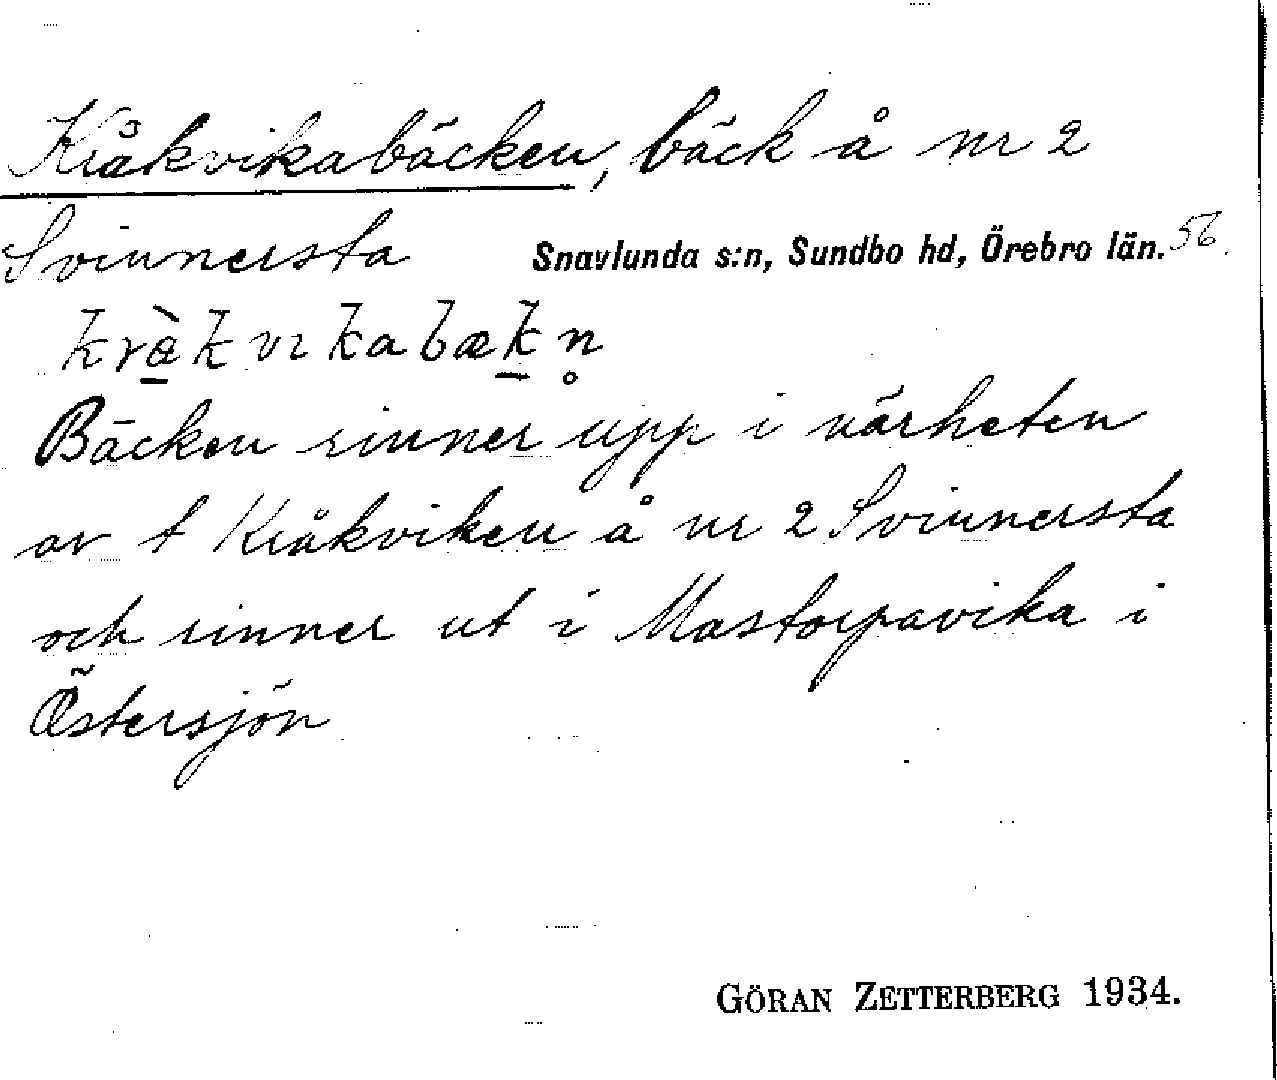 Kråkvikabäcken, bäck å nr 2
Svinnersta Snavlunda s:n, Sundbo hd, Örebro län. 56.
Bäcken rinner upp i närheten
av t Kråkviken å nr 2 Svinnersta
och rinner ut i Mastorpavika i
Östersjön
GÖRAN ZETTERBERG 1934.